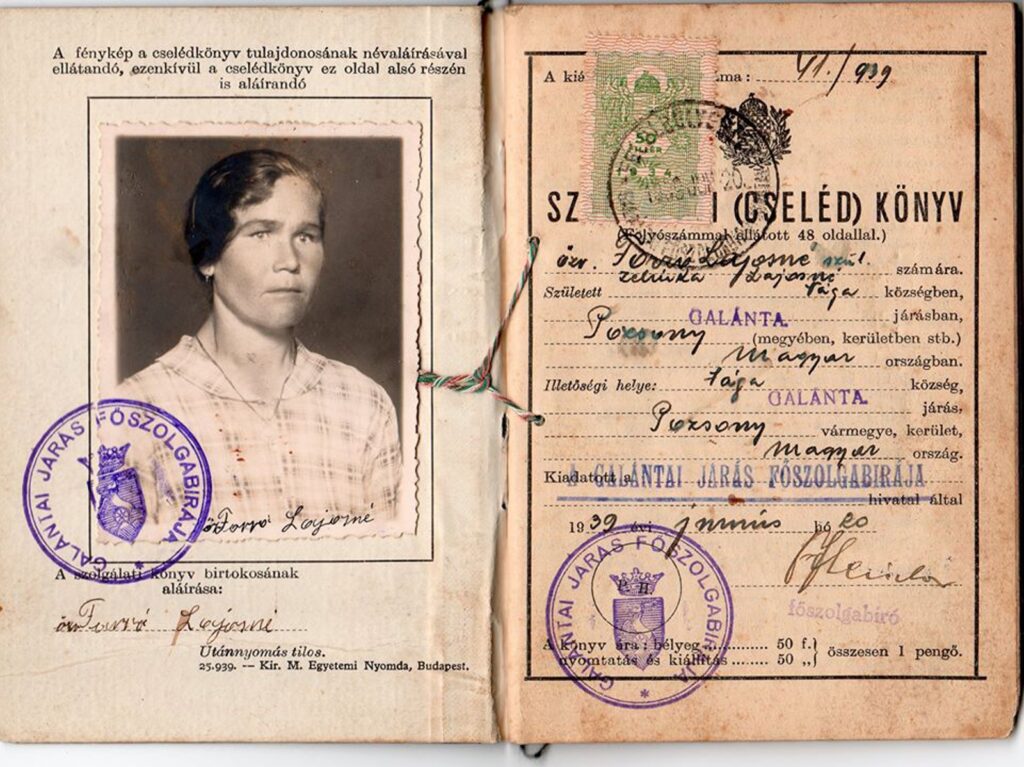 A fénykép a cselédkönyv tulajdonosának névaláírásával
ellátandó, ezenkívül a cselédkönyv ez oldal alsó részén
is aláírandó
GALÁNTAI JÁRÁS FŐSZOLGABIRÁJA
özv Forró Lajosné
A szolgálati könyv birtokosának
aláírása:
özv Forró Lajosné
Utánnyomás tilos.
25.939. — Kir. M. Egyetemi Nyomda, Budapest.
A kiá ama: 41./939
50
SZ I (CSELÉD) KÖNYV
(Folyószámmal ellátott 48 oldallal.)
özv. Forró Lajosné szül.
Lajosné számára.
Született Tága községben,
GALÁNTA járásban,
Pozsony (megyében, kerületben stb.)
Magyar országban.
Illetőségi helye: Tága község,
GALÁNTA járás,
Pozsony vármegye, kerület,
Magyar ország.
Kiadatott a A GALÁNTAI JÁRÁS FŐSZOLGABIRÁJA
hivatal által
1939 évi június hó 20
főszolgabíró
GALÁNTAI JÁRÁS FŐSZOLGABIRÁJA
P. H.
A könyv ára: bélyeg 50 f.
nyomtatás és kiállítás 50 „ összesen 1 pengő.